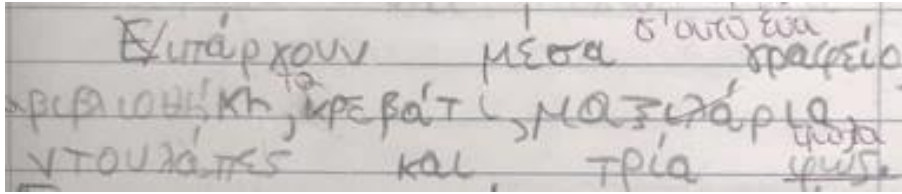 Υπάρχουν μέσα σ'αυτό ένα γραφείο
βιβλιοθήκη, το κρεβάτι, μαξιλάρια
ντουλάπες και τρία φως.